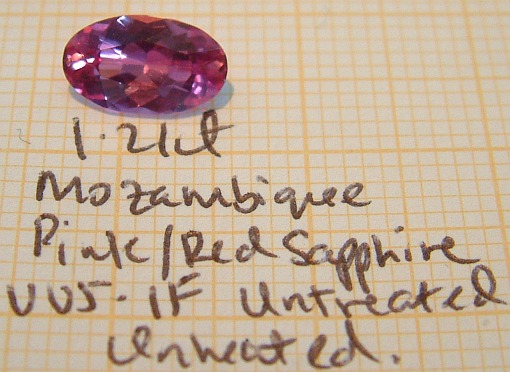 1.21ct
Mozambique
Pink/Red Sapphire
VVS-IF Untreated
Unheated.